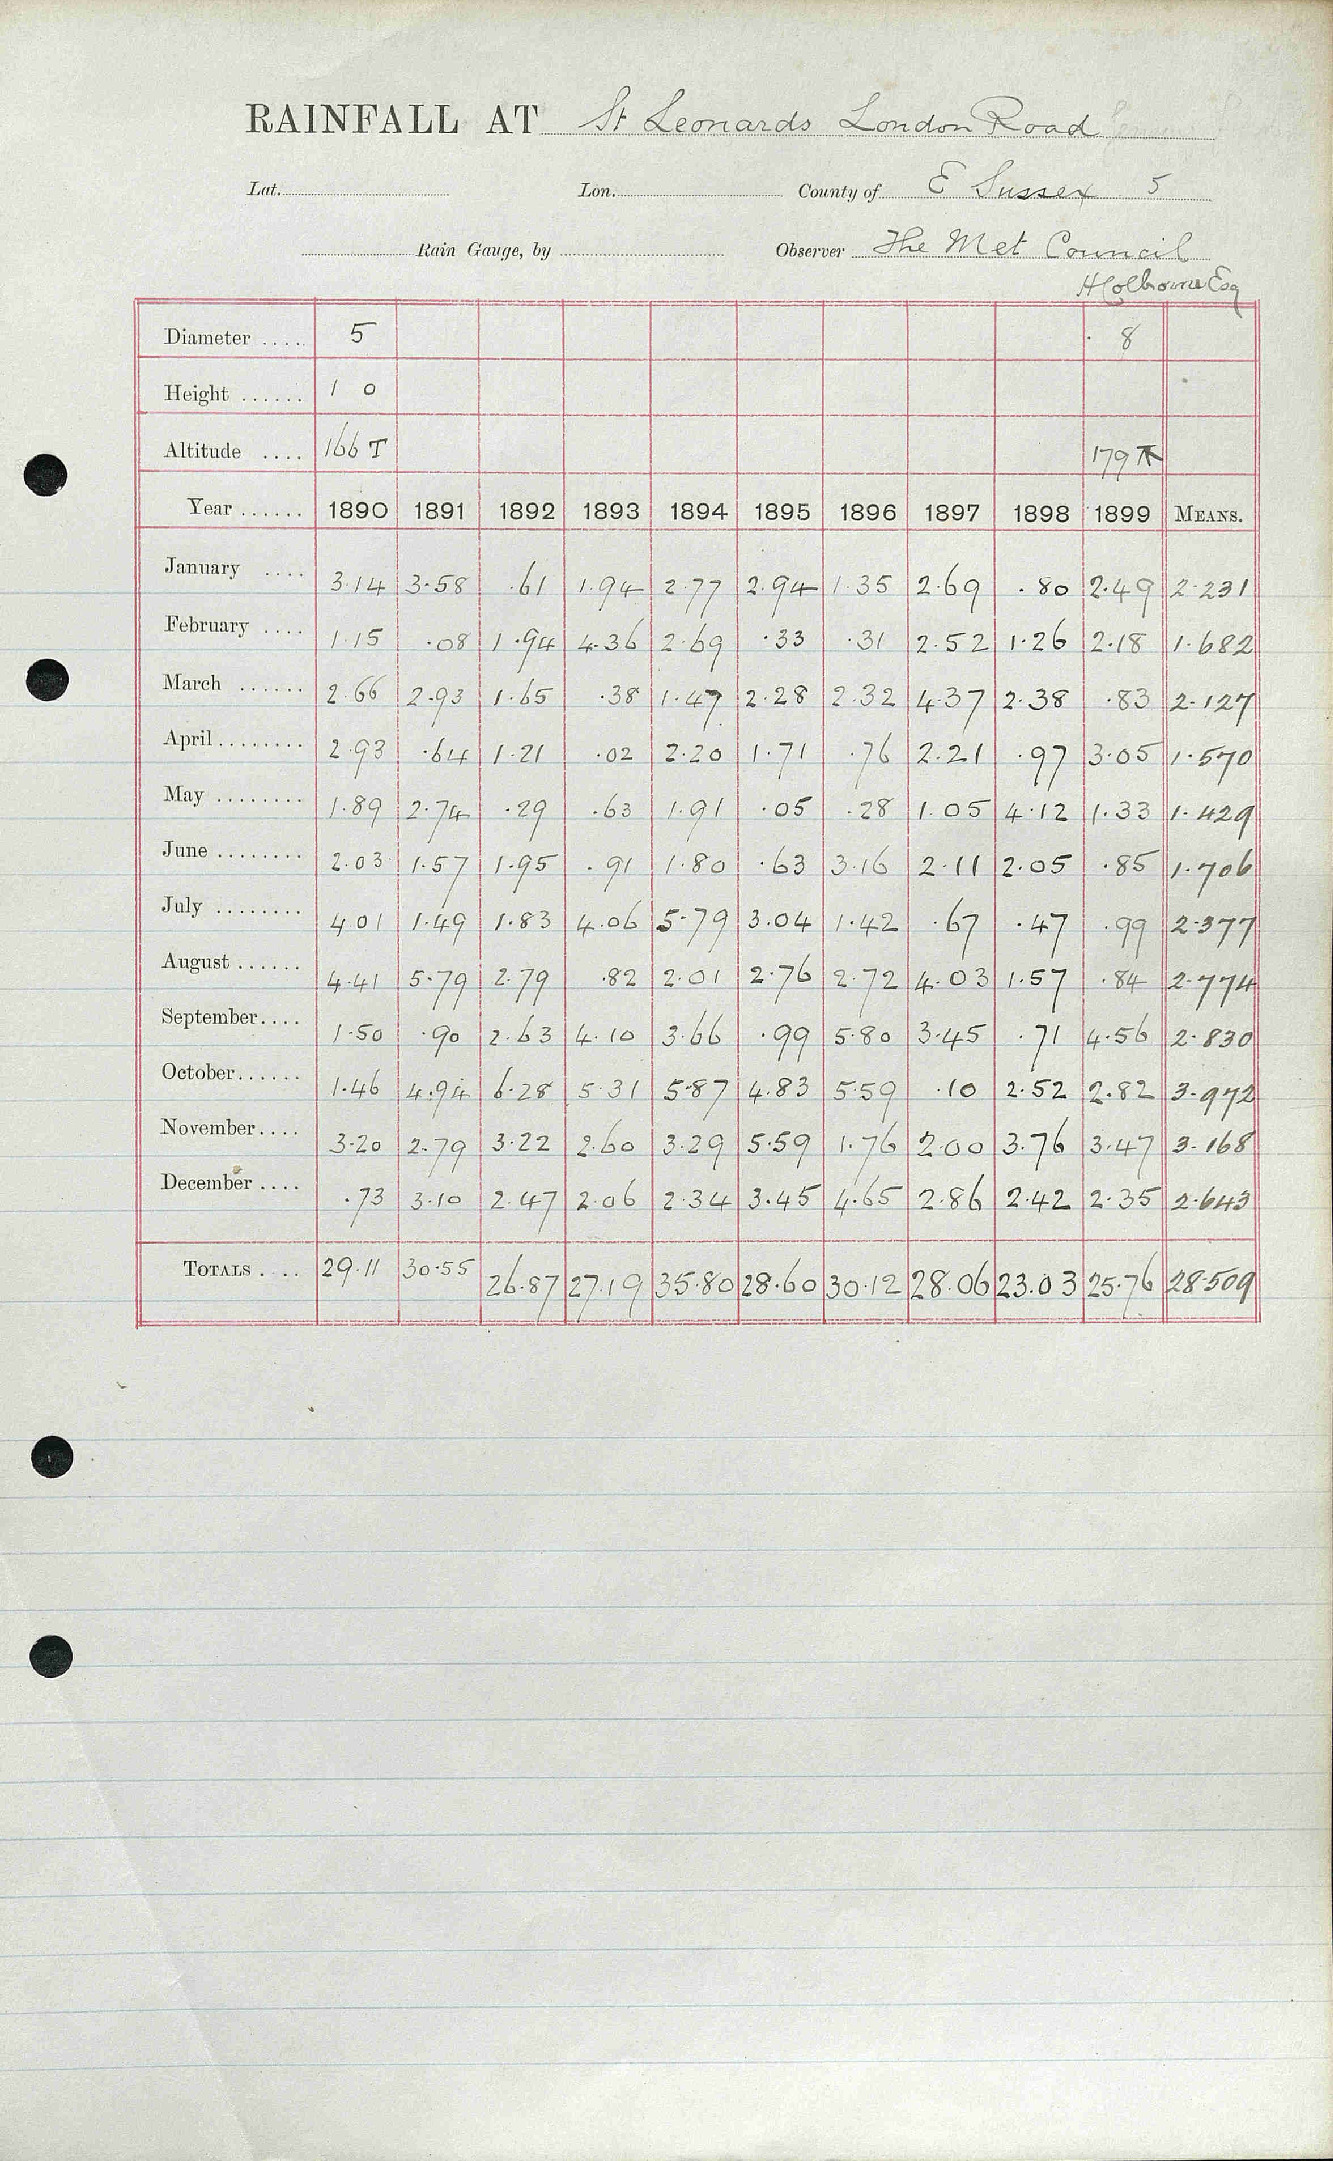 RAINFALL AT St Leonards London Road
Lat. Lon. County of E Sussex 5
Rain Gauge, by Observer The Met Council
H Colborne Esq
Diameter .... 5 8
Height ...... 1 0
Altitude .... 166 T 179
Year ...... 1890 1891 1892 1893 1894 1895 1896 1897 1898 1899 MEANS.
January .... 3.14 3.58 .61 1.94 2.77 2.94 1.35 2.69 .80 2.49 2.231
February .... 1.15 .08 1.94 4.36 2.69 .33 .31 2.52 1.26 2.18 1.682
March ...... 2.66 2.93 1.65 .38 1.47 2.28 2.32 4.37 2.38 .83 2.127
April ........ 2.93 .64 1.21 .02 2.20 1.71 .76 2.21 .97 3.05 1.570
May ........ 1.89 2.74 .29 .63 1.91 .05 .28 1.05 4.12 1.33 1.429
June ........ 2.03 1.57 1.95 .91 1.80 .63 3.16 2.11 2.05 .85 1.706
July ........ 4 01 1.49 1.83 4.06 5.79 3.04 1.42 .67 .47 .99 2.377
August ...... 4.41 5.79 2.79 .82 2.01 2.76 2.72 4.03 1.57 .84 2.774
September .... 1.50 .90 2.63 4.10 3.66 .99 5.80 3.45 .71 4.56 2.830
October ...... 1.46 4.94 6.28 5 31 5.87 4.83 5.59 .10 2.52 2.82 3.972
November .... 3.20 2.79 3.22 2.60 3.29 5.59 1.76 2.00 3.76 3.47 3.168
December .... .73 3.10 2.47 2.06 2.34 3.45 4.65 2.86 2.42 2.35 2.643
TOTALS .... 29.11 30.55 26.87 27.19 35.80 28.60 30.12 28.06 23.03 25.76 28.509